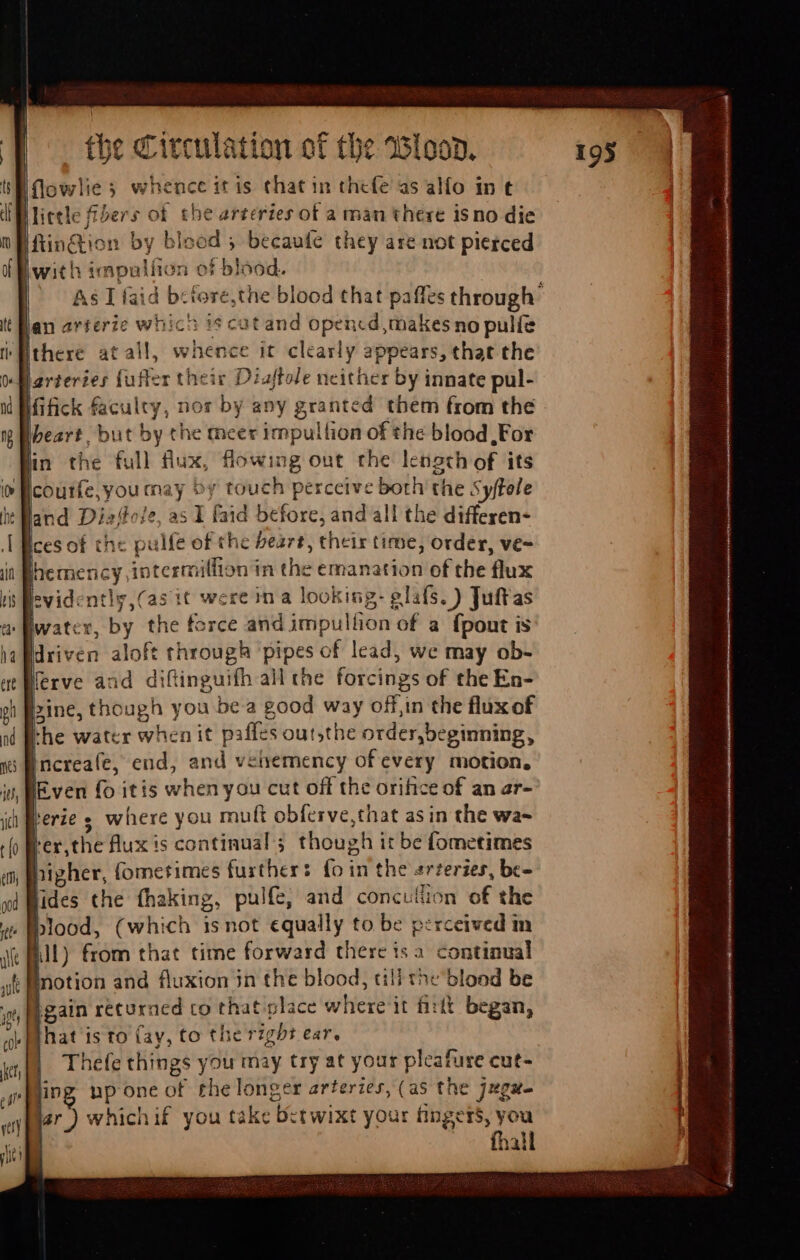 the Circulation of the Bloon.
195
flowlie ; whence it is that in thefe as alfo in t
little fibers of the arteries of a man there is no die
ftinction by blood ; becaufe they are not pierced
with impulfion of blood.
As I faid before, the blood that paffes through
an arterie which is cut and opened, makes no pulfe
there at all, whence it clearly appears, that the
arteries fuffer their Diaftole neither by innate pul-
fifick faculty, nor by any granted them from the
heart, but by the meer impulfion of the blood, For
in the full flux, flowing out the length of its
courfe, you may by touch perceive both the Syftole
and Diaftole, as I faid before, and all the differen-
ces of the pulfe of the heart, their time, order, ve-
hemency, intermiffion in the emanation of the flux
evidently, (as it were in a looking-glafs. ) Juft as
water, by the force and impulfion of a fpout is
driven aloft through pipes of lead, we may ob-
ferve and diftinguifh all the forcings of the En-
gine, though you be a good way off, in the flux of
the water when it paffes out, the order, beginning,
increafe, end, and vehemency of every motion.
Even fo it is when you cut off the orifice of an ar-
terie ; where you muft obferve, that as in the wa-
ter, the flux is continual ; though it be fometimes
higher, fometimes further : fo in the arteries, be-
fides the fhaking, pulfe, and concuffion of the
blood, (which is not equally to be perceived in
all) from that time forward there is a continual
motion and fluxion in the blood, till the blood be
again returned to that place where it firft began,
that is to fay, to the right ear.
Thefe things you may try at your pleafure cut-
ting up one of the longer arteries, (as the jugu-
lar ) which if you take betwixt your fingers, you
fhall